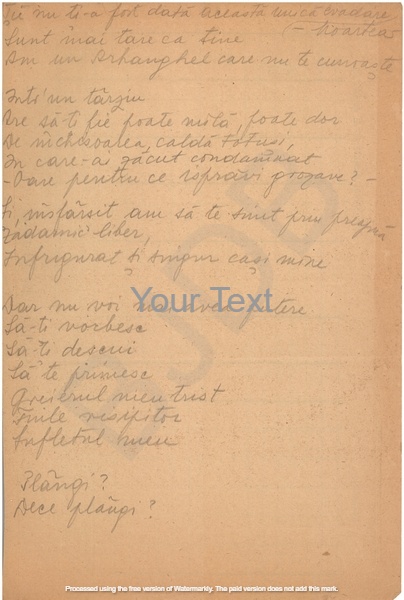 Ție nu ți-a fost dată această unică evadare
(- moartea
Sunt mai tare ca tine
Am un Arhanghel care nu te cunoaște
Într'un târziu
Are să-ți fie poate milă, poate dor
De închisoarea, caldă totuși,
În care-ai zăcut condamnat
- Oare pentru ce isprăvi grozave? -
Și, însfârșit am să te simt prin preajmă
Zădarnic liber,
Înfrigurat și singur ca și mine
Dar nu voi mai avea putere
Your Text
Să-ți vorbesc
Să-ți descui
Să te primesc
Greierul meu trist
Fiule risipitor
Sufletul meu
Plângi?
Dece plângi?
Processed using the free version of Watermarkly. The paid version does not add this mark.